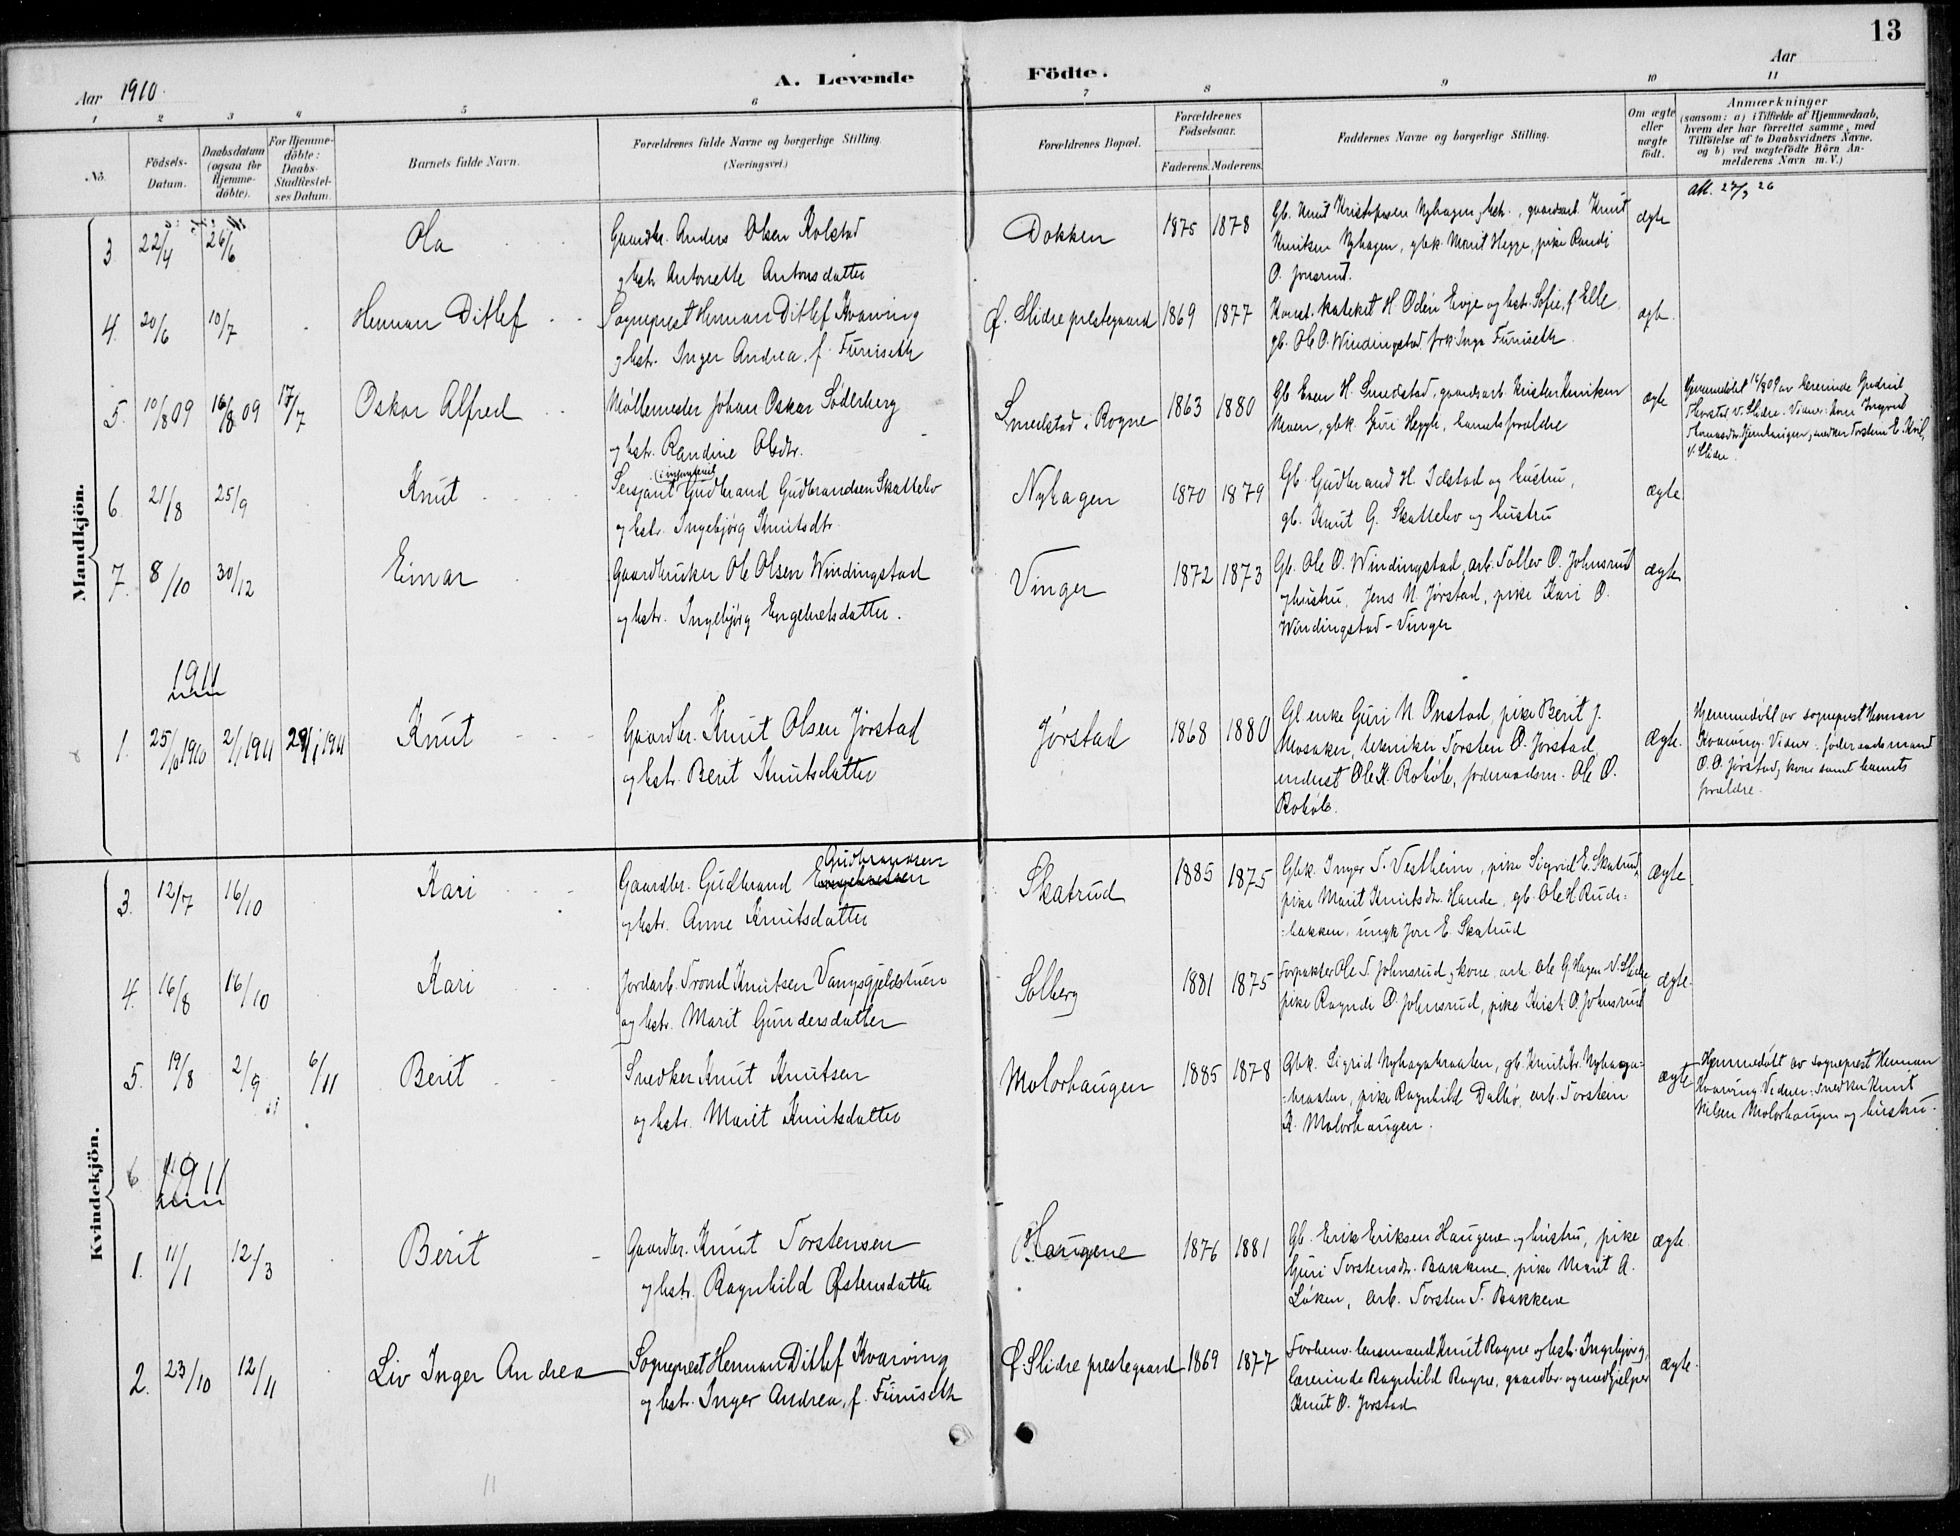 13
Aar 1910.
A. Levende Födte.
Aar
1 2 3 4 5 6 7 8 9 10 11
No.
Födsels-Datum.
Daabsdatum (ogsaa for Hjemmedöbte).
For Hjemmedöbte: Daabs-Stadfæstelses Datum.
Barnets fulde Navn.
Forældrenes fulde Navne og borgerlige Stilling. (Næringsvei.)
Forældrenes Bopæl.
Forældrenes Födselsaar.
Faderens. Moderens.
Faddernes Navne og borgerlige Stilling.
Om ægte eller uægte födt.
Anmærkninger
(saasom: a) i Tilfælde af Hjemmedaab, hvem der har forrettet samme, med Tilföielse af to Daabsvidners Navne. og b) ved uægtefödte Börn Anmelderens Navn m. V.)
Mandkjön.
3. 22/4 26/6 Ola
Gaardbr. Anders Olsen Kolstad
og hstr. Antonette Antonsdatter
Dokken 1875 1878
Gb. Knut Kristofersen Nyhagen og hstr., gaardsarb. Knut
Knutsen Nyhagen, gbk. Marit Hegge, pike Randi
O. Jonsrud.
ægte
att. 27/3 26
4. 20/6 10/7 Herman Ditlef
Sogneprest Herman Ditlef Kvarving
og hstr. Inger Andrea, f. Furuseth
Ø. Slidre prestegaard 1869 1877
Konst. kateket H. Odén Evje og hstr. Sofie, f. Elle,
gb. Ole O. Windingstad, frk. Inga Furuseth
ægte.
5. 10/8 09 16/8 09 17/7 Oskar Alfred
Møllemester Johan Oskar Söderberg
og hstr. Randine Olsdtr.
Smedstad i Rogne 1863 1880
Gb. Even H. Smedstad, gaardsarb. Kristen Knutsen
Moen, gbk. Guri Hegge, barnets forældre
ægte
Hjemmedöbt 16/8 09 av lærerinde Gudrid
V. Slidre.
6. 21/8 25/9 Knut
Sersjant Gudbrand Gudbrandsen Skattebo
og hstr. Ingebjörg Knutsdtr.
Nyhagen 1870 1879
Gb. Gudbrand H. Idstad og hustru,
gb. Knut G. Skattebo og hustru
ægte
7. 8/10 30/12 Einar
Gaardbruker Ole Olsen Windingstad
og hstr. Ingebjörg Engebretsdatter.
Vinger 1872 1873
Gb. Ole O. Windingstad, arb. Tollev O. Johnsrud
og hustru, Jens N. Jørstad, pike Kari O.
Windingstad - Vinger
ægte
1911
1. 25/10 1910 2/1 1911 29/1 1911 Knut
Gaardbr. Knut Olsen Jørstad
og hstr. Berit Knutsdatter
Jørstad 1868 1880
Gl. enke Guri N. Onstad, pike Berit J.
Mosaker, tekniker Torsten O. Jørstad,
Ole K. Robøle, føderaadsm. Ole O.
Robøle.
ægte.
Hjemmedöbt av sogneprest Herman
Kvarving. Vidner: føderaadsmand
O. O. Jørstad, kone samt barnets
forældre.
Kvindekjön.
3. 12/7 16/10 Kari
Gaardbr. Gudbrand Gudbrandsen
og hstr. Anne Knutsdatter
Skatrud 1885 1875
Gbk. Inger T. Vestheim, pike Sigrid E. Skatrud,
pike Marit Knutsdtr. Hande, gb. Ole H. Rude-
bakken, ungk. Jon E. Skatrud
ægte
4. 16/8 16/10 Kari
Jordarb. Trond Knutsen Vangsgjeldstuen
og hstr. Marit Gundersdatter
Solberg 1881 1875
Forpakter Ole T. Johnsrud og kone, arb. Ole G. Hagen V. Slidre,
pike Ragnde O. Johnsrud, pike Krist. O. Johnsrud
ægte.
5. 19/8 2/9 6/11 Berit
Snedker Knut Knutsen
og hstr. Marit Knutsdatter
Molorhaugen 1885 1878
Gbk. Sigrid Nyhagabraaten, gb. Knut Kr. Nyhaga-
braaten, pike Ragnhild Dalbø, arb. Torstein
K. Molorhaugen.
ægte
Hjemmedöbt av sogneprest Herman
Kvarving. Vidner: snedker Knut
Nilsen Molorhaugen og hustru.
6
1911
1. 11/1 12/3 Berit
Gaardbr. Knut Torstensen
og hstr. Ragnhild Østensdatter
Haugene 1876 1881
Gb. Erik Eriksen Haugene og hustru, pike
Guri Torstensdtr. Bakkene, pike Marit A.
Løken, arb. Torsten T. Bakkene
ægte.
2. 23/10 12/11 Liv Inger Andrea
Sogneprest Herman Ditlef Kvarving
og hstr. Inger Andrea, f. Furuseth
Ø. Slidre prestegaard 1869 1877
Forhenv. lensmand Knut Rogne og hstr. Ingebjörg,
lærerinde Ragnhild Rogne, gaardbr. og medhjelper
Knut O. Jørstad
ægte.